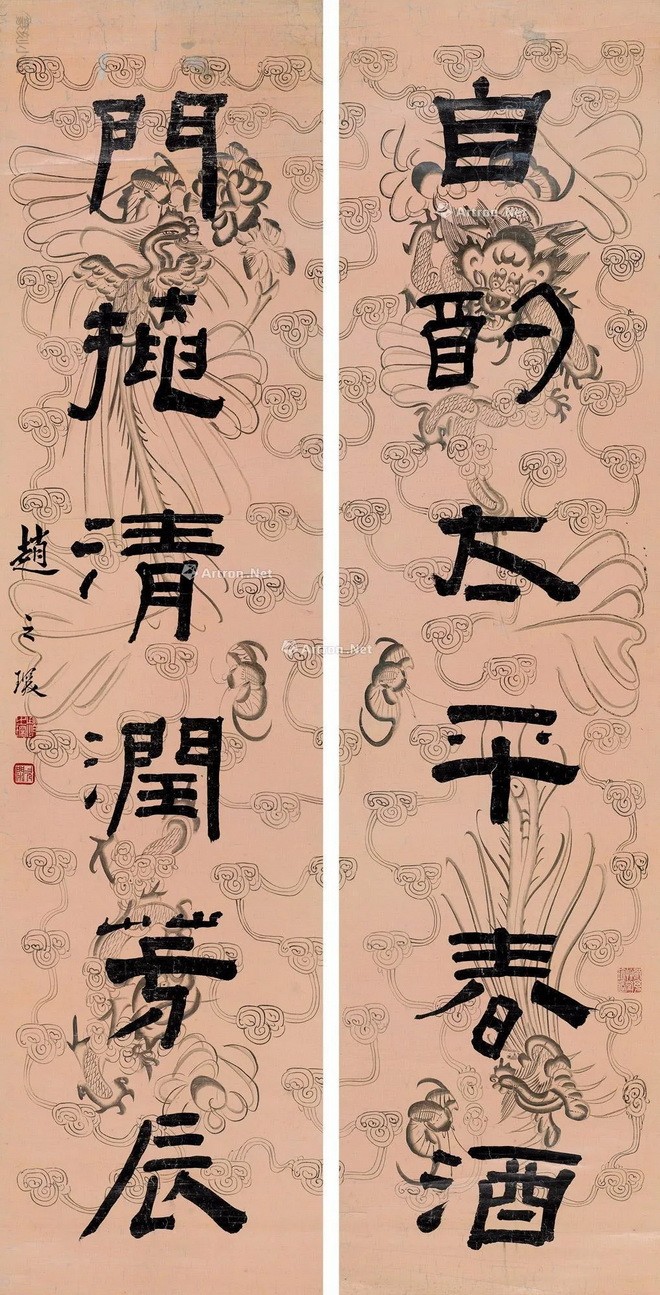 自酌太平春酒
門掩清潤芳辰
趙之琛
Artron.Net
Artron.Net
Artron.Net